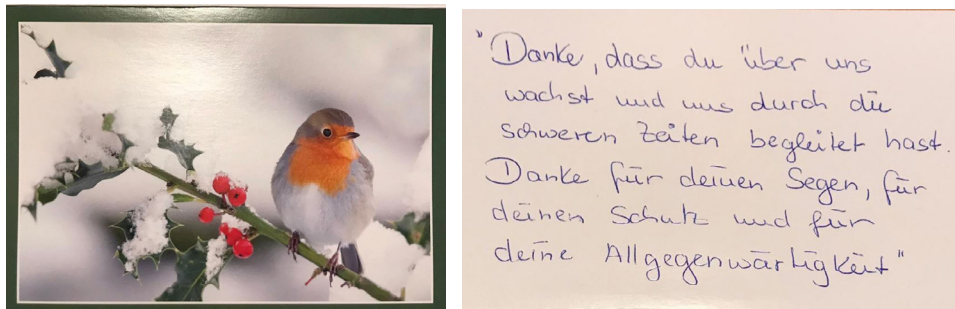 "Danke, dass du über uns
wachst und uns durch die
schweren Zeiten begleitet hast.
Danke für deinen Segen, für
deinen Schutz und für
deine Allgegenwärtigkeit"